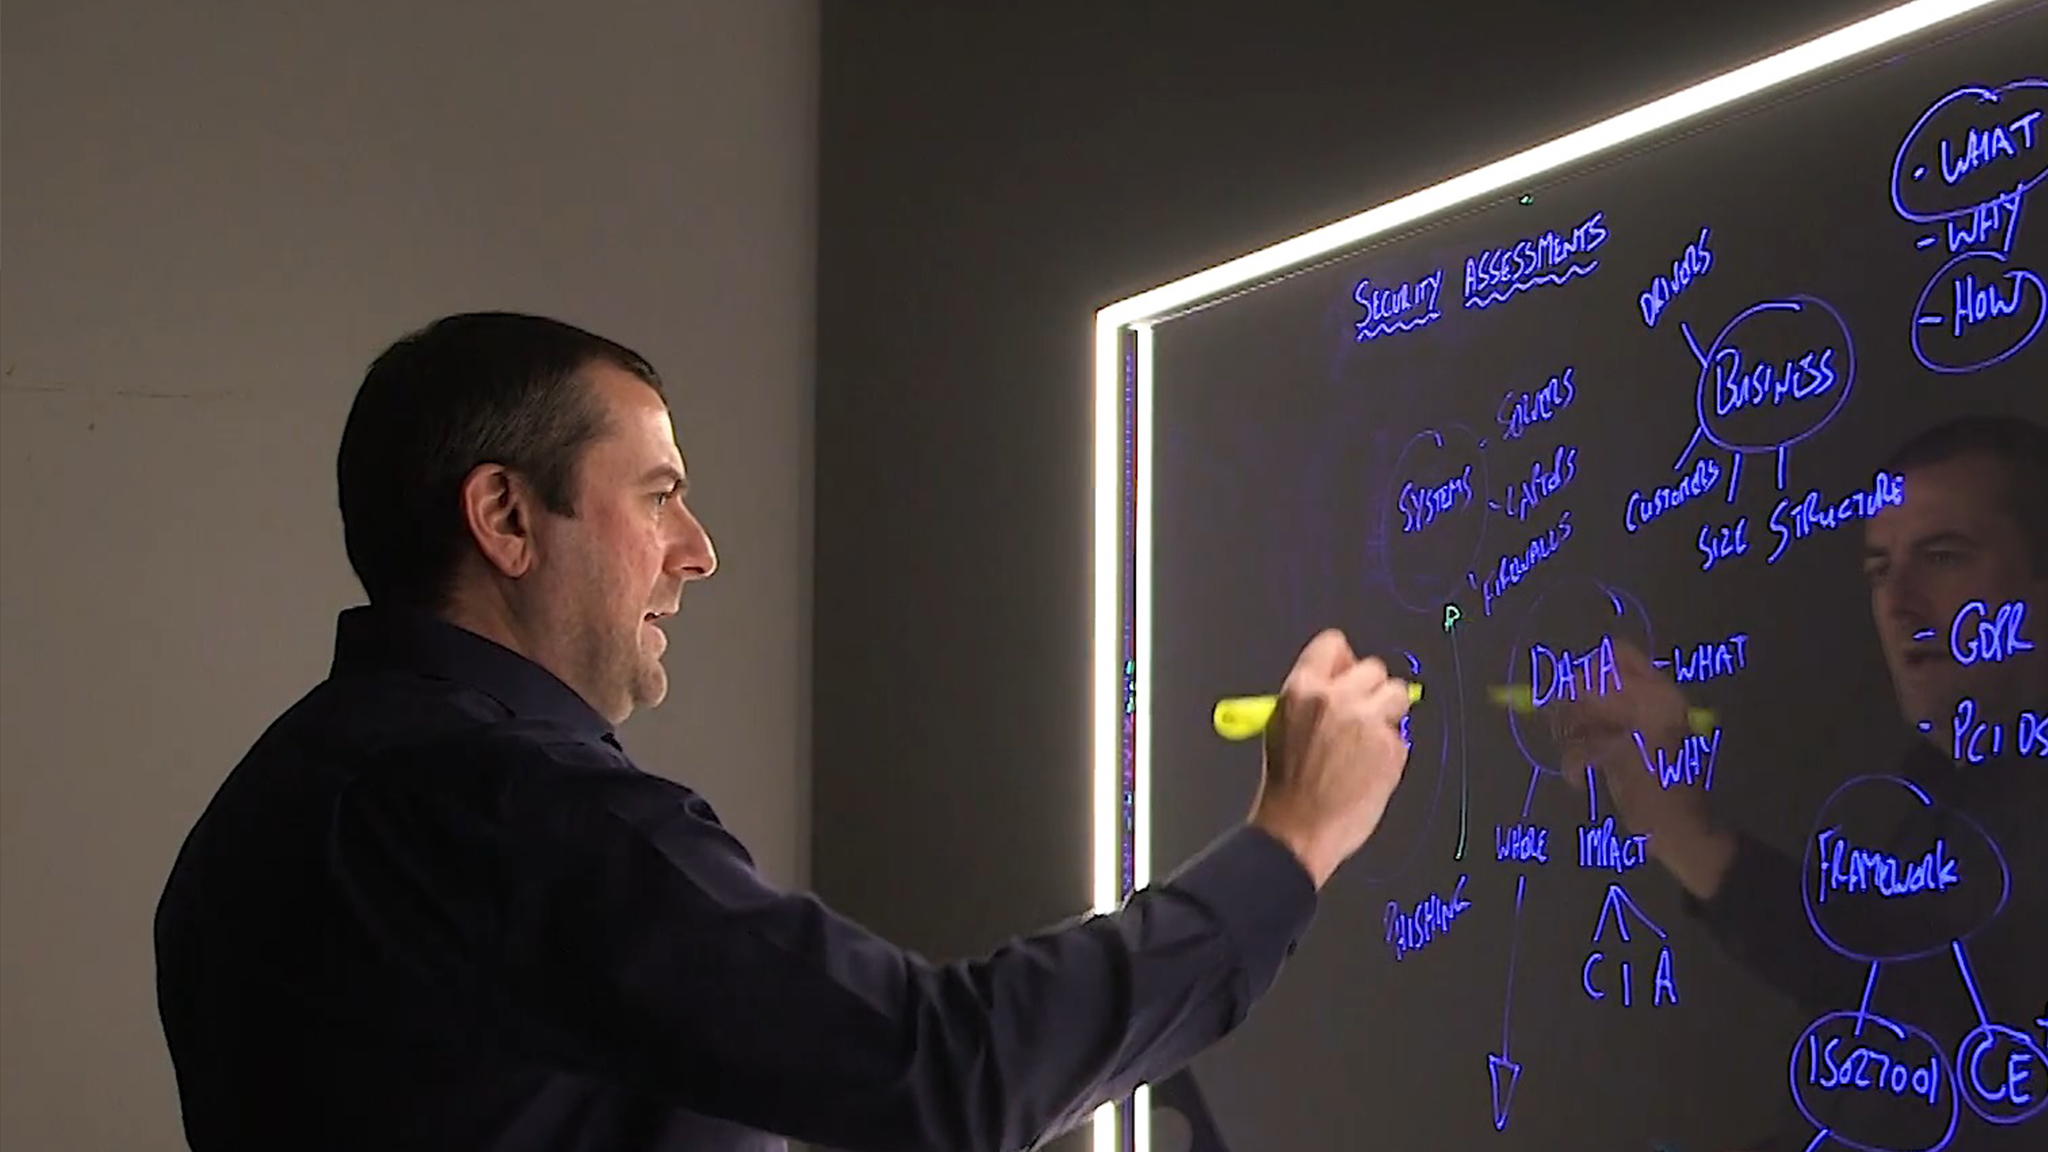 SECURITY ASSESSMENTS
- WHAT
- WHY
- HOW
DRIVERS
BUSINESS
CUSTOMERS
SIZE
STRUCTURE
SYSTEMS
- LAPTOPS
FIREWALLS
DATA
- WHAT
WHY
WHERE
IMPACT
C I A
PHISHING
- GDPR
- PCI DS
FRAMEWORK
ISO27001
CE